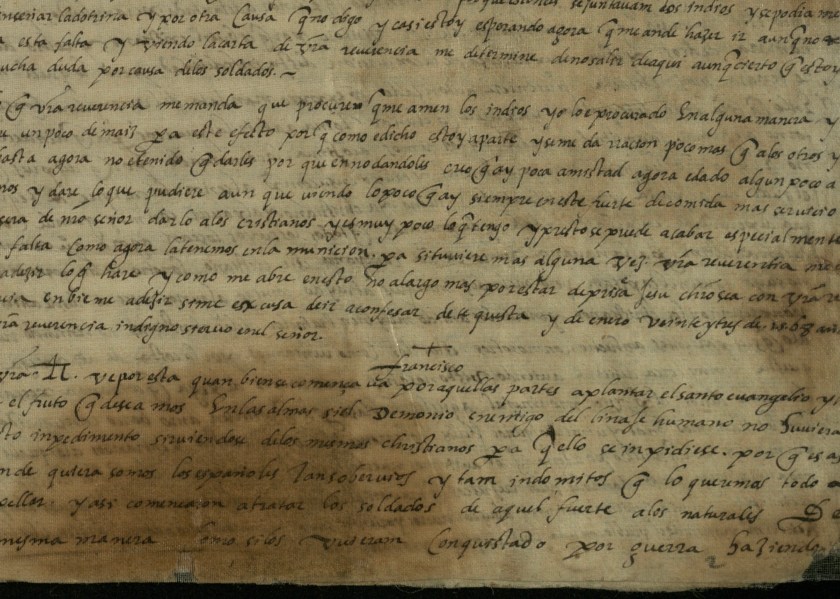 enseñar ladotrina y por otra causa q̃ no digo y casi estoy esperando agora q̃ me ande hazer ir aunq̃ no
esta falta y viendo la carta de vr̃a reverencia me determine de no salir deaqui aunq̃ cierto q̃ estoy
mucha duda por causa delos soldados.~
q̃ vr̃a reverencia me manda que procuremos q̃ me amen los indios yo lo e procurado en alguna manera y
un poco de maiz pa este efecto por q̃ como e dicho estoy a parte y se me da racion poco mas q̃ a los otros y
hasta agora no e tenido q̃ darles por que en no dandoles creo q̃ ay poca amistad agora e dado algun poco a
y dare lo que pudiere aun que viendo lo poco q̃ ay siempre en este fuerte de comida mas servicio
sera de nr̃o señor darlo a los cristianos y es muy poco lo q̃ tengo y presto se puede acabar especialmente
falta como agora la tenemos en la municion. pa si tuviere mas alguna vez. vr̃a reverentia me
adezir lo q̃ hare y como me abre en esto no alargo mas por estar de prisa Jesu chr̃o sea con vr̃a
enbieme adezir si me escusa de ir a confesar. de te quista y de enero veinte y tres de .1568 añ
vr̃a reverencia indigno siervo en el señor.
Francisco
vr̃a R. ve por esta quan bien se comença va por aquellas partes a plantar el santo evangelio y
el fruto q̃ deseamos en las almas si el Demonio enemigo del linaje humano no huviera
inpedimento sirviendose delos mesmos christianos pa q̃ ello se inpidiese. por q̃ es
nde quiera somos los españoles tan sobervios y tam indomitos q̃ lo queremos todo
y asi començaron a tratar los soldados de aquel fuerte a los naturales De
mesma manera como si los vuieram conquistado por guerra haziendo